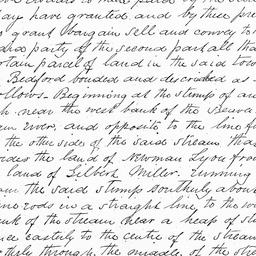 may have granted, and by these pre
grant bargain Sell and convey to
party of the second part all that
tain parcel of land in the said tow
Bedford bounded and described as
llows. Beginning at the stump of an
h near the west bank of the Beaver
River, and opposite to the line
the other sides of the said stream that
ides the land of Newman Lyon from
land of Gilbert Miller. running
om the said stump southerly about
ine rods in a straight line, to the we
ank of the stream near a heap of sto
nce easterly to the centre of the stream
through the middle of the stre